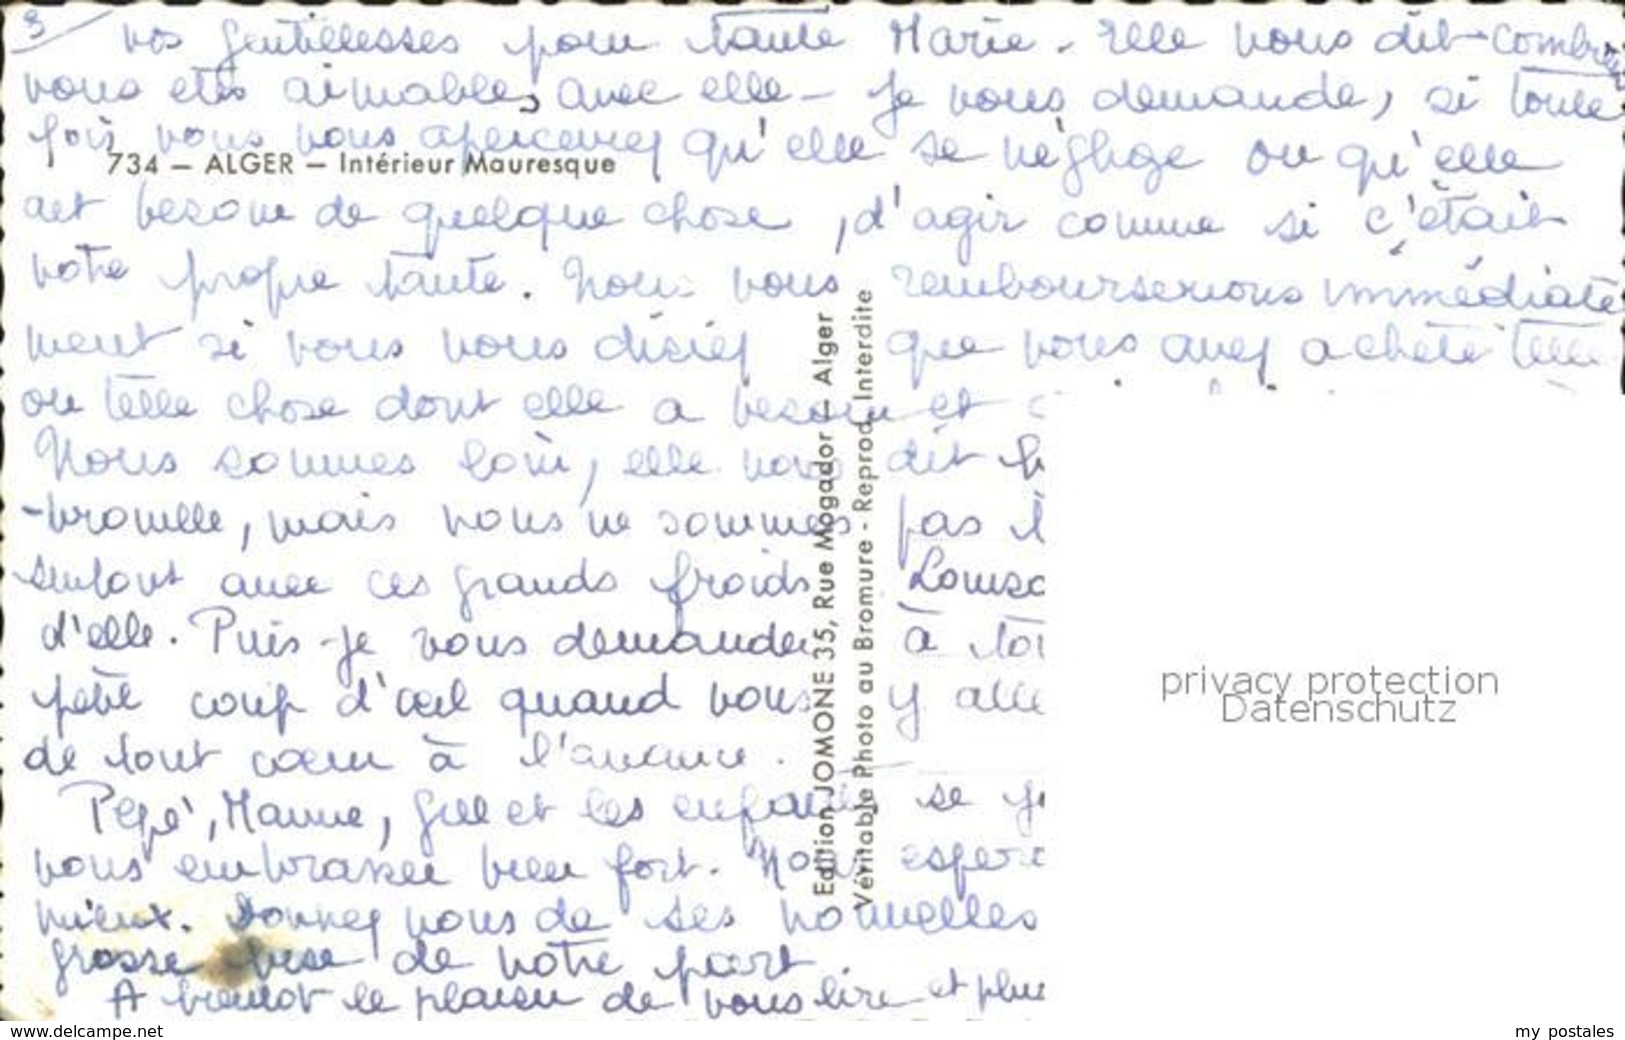 3/ vos gentillesses pour tante Marie. Elle nous dit combien
vous etes aimables avec elle - Je vous demande, si toute
fois vous vous apercevez qu'elle se néglige ou qu'elle
734 — ALGER — Intérieur Mauresque
ait besoin de quelque chose, d'agir comme si c'était
votre propre tante. Nous vous rembourserions immédiate
ment si vous nous disiez que vous avez acheté telle
ou telle chose dont elle a besoin et
Nous sommes loin, elle nous dit
-brouille, mais nous ne sommes pas
surtout avec ces grands froids
d'elle. Puis-je vous demander à
petit coup d'œil quand vous y
de tout cœur à l'avance.
Pépé, Manne, Gil et les enfants se
vous embrasser bien fort. Nous
mieux. Donnez nous de ses nouvelles
grosse bise de notre part
A bientot le plaisir de vous lire et
Edition JOMONE 35, Rue Mogador — Alger
Véritable Photo au Bromure - Reprod. Interdite
privacy protection
Datenschutz
www.delcampe.net
my postales